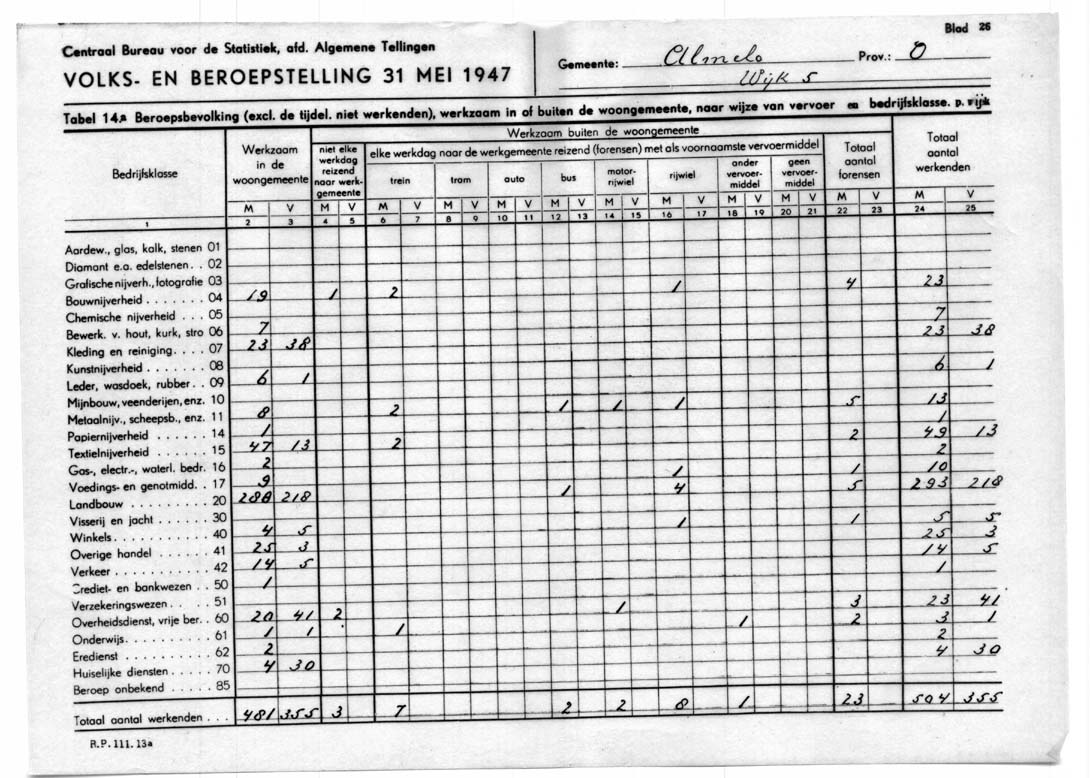 Blad 26
Centraal Bureau voor de Statistiek, afd. Algemene Tellingen
VOLKS- EN BEROEPSTELLING 31 MEI 1947
Gemeente: Almelo Prov.: O
Wijk 5
Tabel 14a Beroepsbevolking (excl. de tijdel. niet werkenden), werkzaam in of buiten de woongemeente, naar wijze van vervoer en bedrijfsklasse. p. wijk
Bedrijfsklasse
Werkzaam in de woongemeente
Werkzaam buiten de woongemeente
niet elke werkdag reizend naar werk-gemeente
elke werkdag naar de werkgemeente reizend (forensen) met als voornaamste vervoermiddel
trein tram auto bus motor-rijwiel rijwiel ander vervoer-middel geen vervoer-middel
Totaal aantal forensen
Totaal aantal werkenden
M V M V M V M V M V M V M V M V M V M V M V M V
1 2 3 4 5 6 7 8 9 10 11 12 13 14 15 16 17 18 19 20 21 22 23 24 25
Aardew., glas, kalk, stenen 01
Diamant e.a. edelstenen. . 02
Grafische nijverh., fotografie 03
Bouwnijverheid . . . . . . . 04 19 1 2 1 4 23
Chemische nijverheid . . . 05
Bewerk. v. hout, kurk, stro 06 7 7
Kleding en reiniging. . . . 07 23 38 23 38
Kunstnijverheid . . . . . . . 08
Leder, wasdoek, rubber. . 09 6 1 6 1
Mijnbouw, veenderijen, enz. 10
Metaalnijv., scheepsb., enz. 11 8 2 1 1 1 5 13
Papiernijverheid . . . . . . 14 1 1
Textielnijverheid . . . . . . 15 47 13 2 2 49 13
Gas-, electr.-, waterl. bedr. 16 2 2
Voedings- en genotmidd. . 17 9 1 1 10
Landbouw . . . . . . . . . . 20 288 218 1 4 5 293 218
Visserij en jacht . . . . . . 30
Winkels. . . . . . . . . . . . 40 4 5 1 1 5 5
Overige handel . . . . . . 41 25 3 25 3
Verkeer . . . . . . . . . . . 42 14 5 14 5
Crediet- en bankwezen . . 50 1 1
Verzekeringswezen. . . . 51
Overheidsdienst, vrije ber. . 60 20 41 2 1 3 23 41
Onderwijs. . . . . . . . . . 61 1 1 1 1 2 3 1
Eredienst . . . . . . . . . . 62 2 2
Huiselijke diensten . . . . . 70 4 30 4 30
Beroep onbekend . . . . . 85
Totaal aantal werkenden . . . 481 355 3 7 2 2 8 1 23 504 355
R.P. 111. 13a